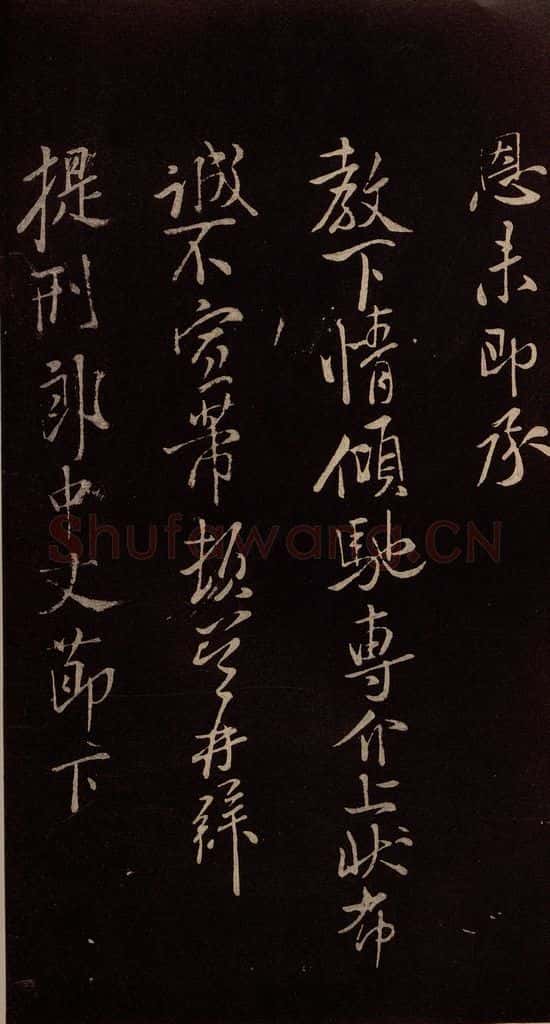 恩未即承
教下情傾馳專介上狀布
誠不宣芾頓首再拜
提刑郎中丈節下
Shufawang.CN